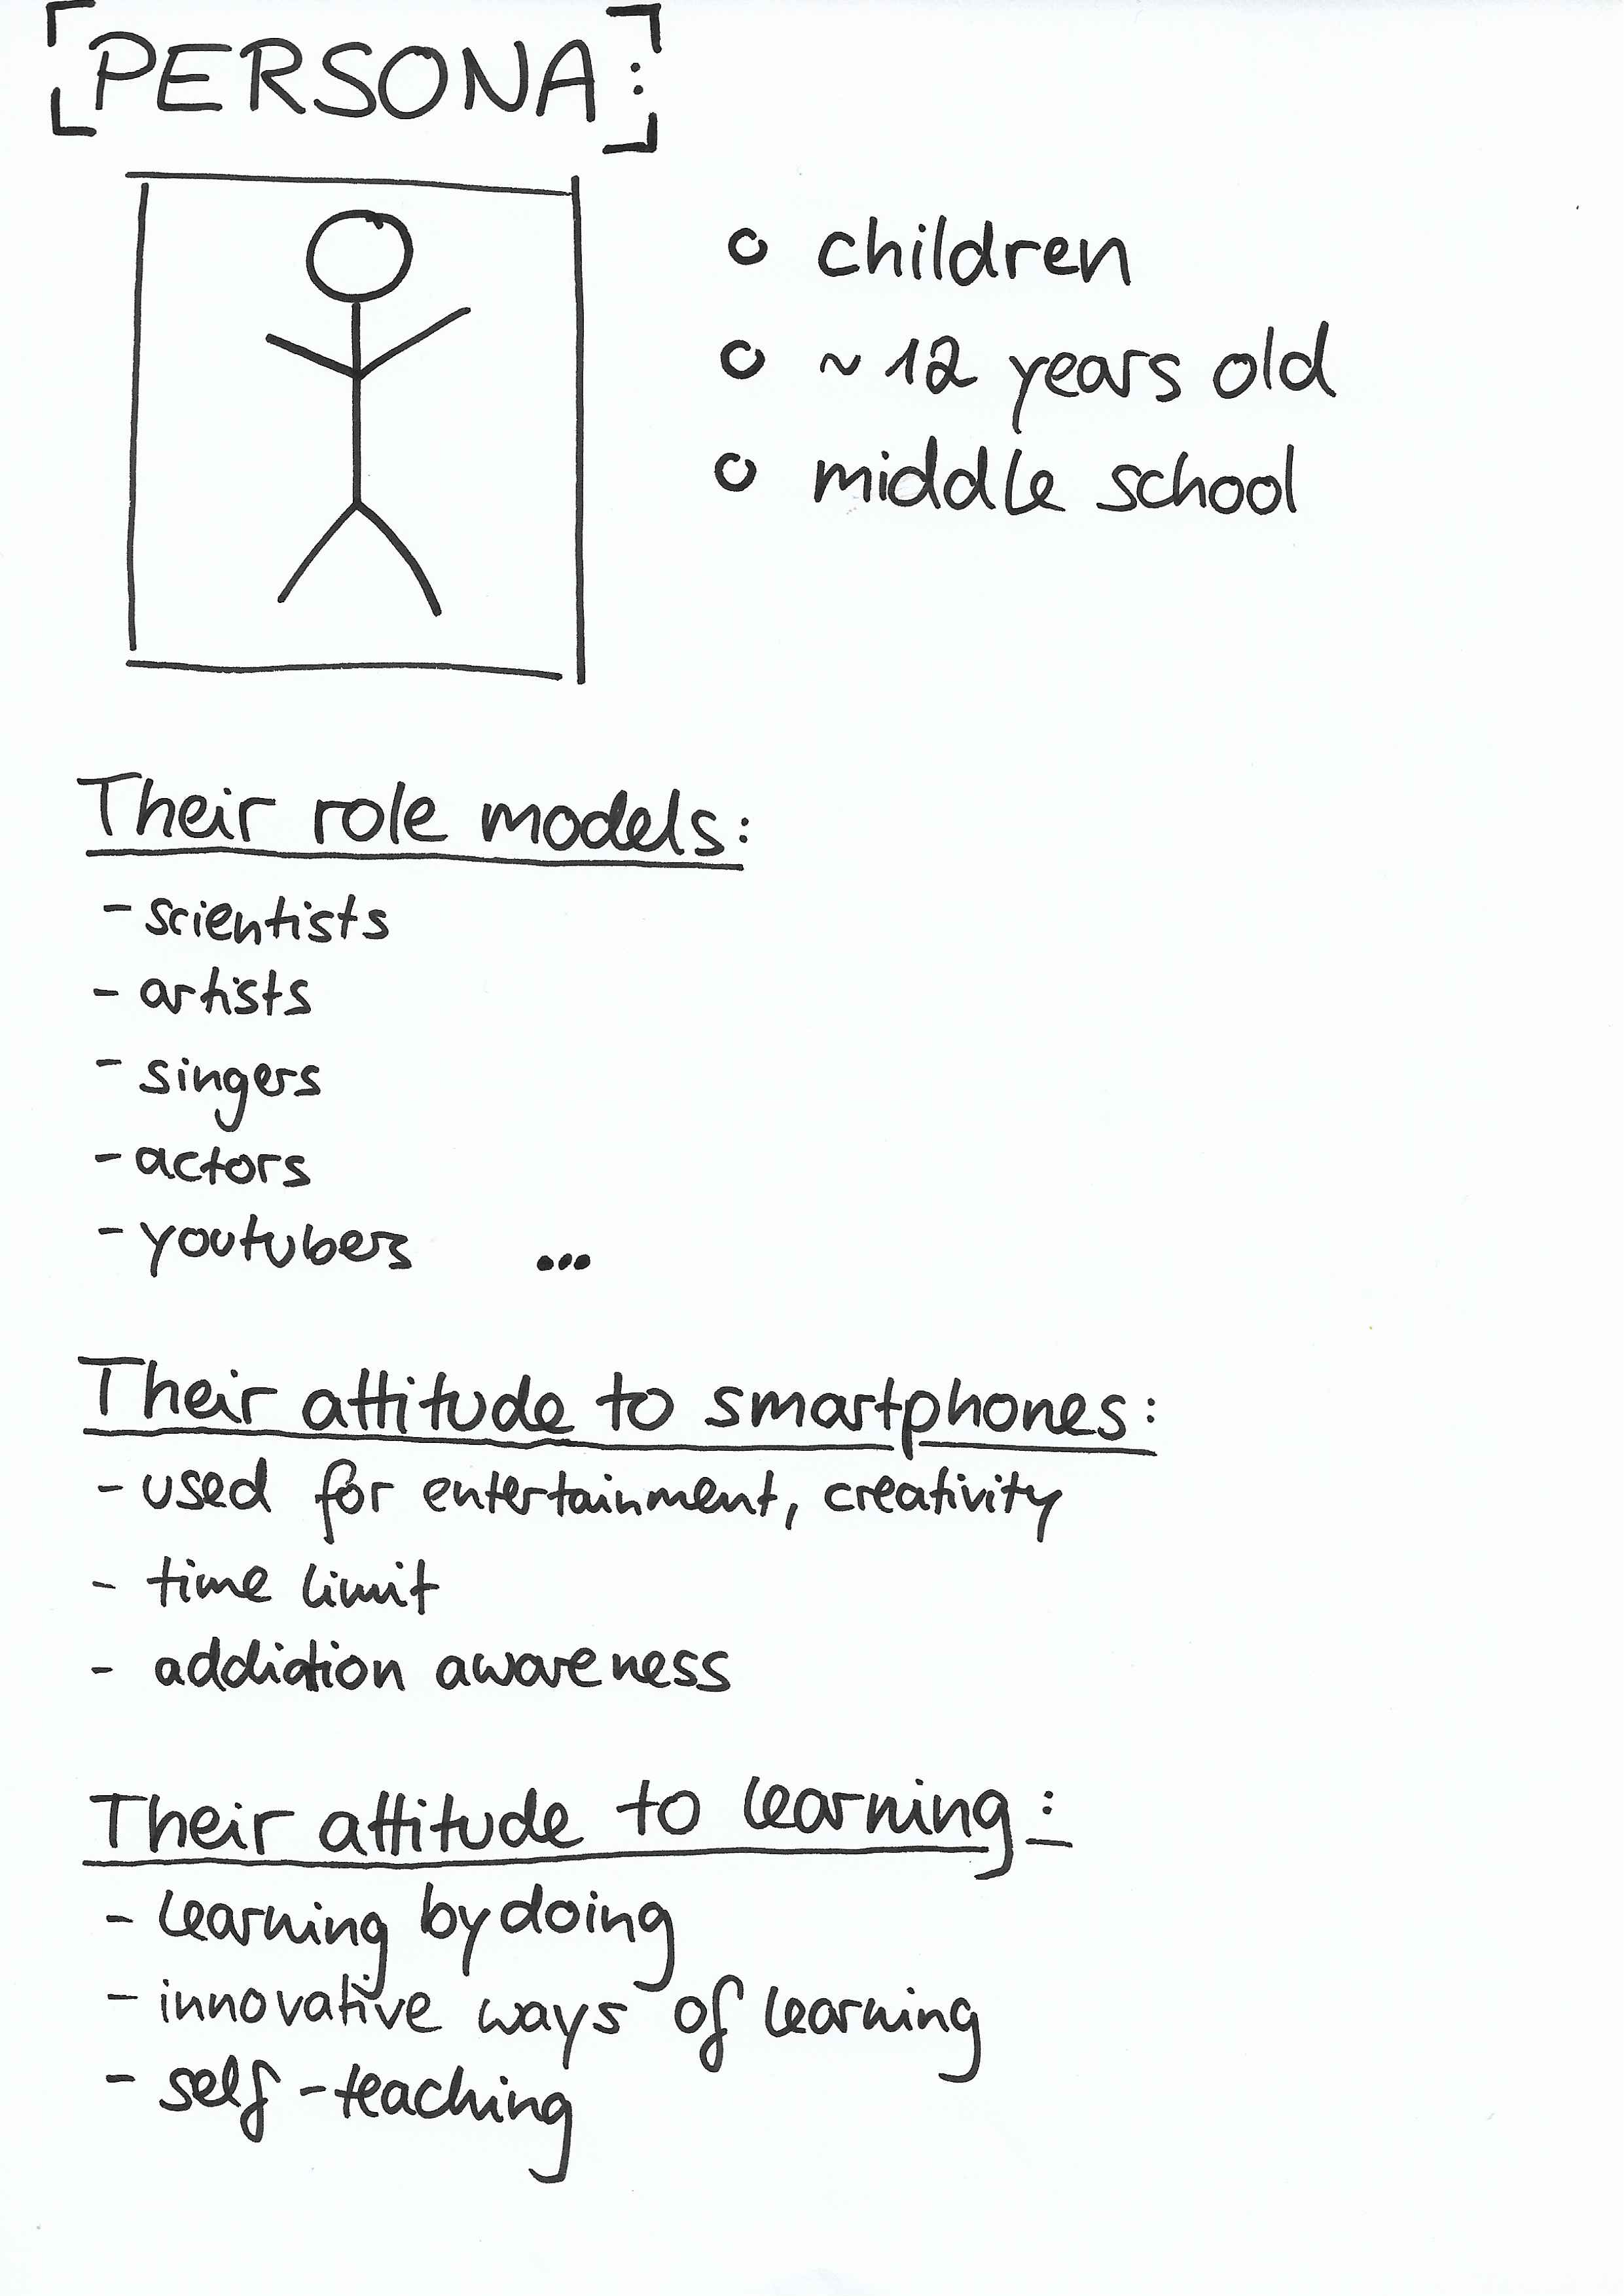 PERSONA:
○ children
○ ~12 years old
○ middle school
Their role models:
- scientists
- artists
- singers
- actors
- youtubers ...
Their attitude to smartphones:
- used for entertainment, creativity
- time limit
- addiction awareness
Their attitude to learning:
- learning by doing
- innovative ways of learning
- self-teaching